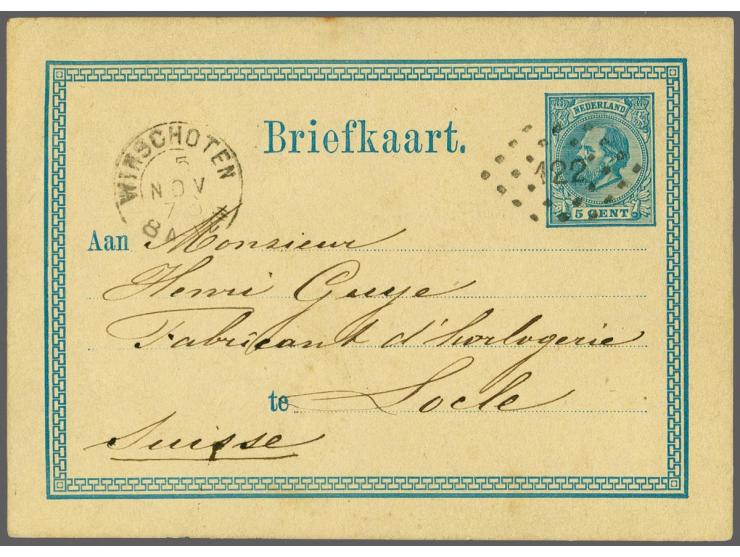 Briefkaart.
NEDERLAND
5 CENT
122
WINSCHOTEN
5
NOV
8 A
Aan Monsieur
Henri Guye
Fabricant d'horlogerie
te Locle
Suisse